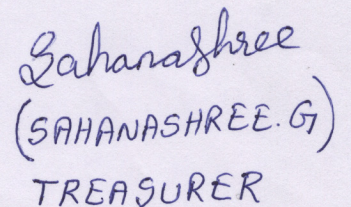 Sahanashree
(SAHANASHREE.G)
TREASURER